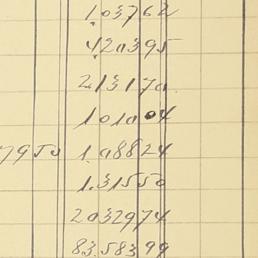 1.03762
4.20395
2.13170
1.01004
7950 1.08824
1.31550
20.32974
83.58399